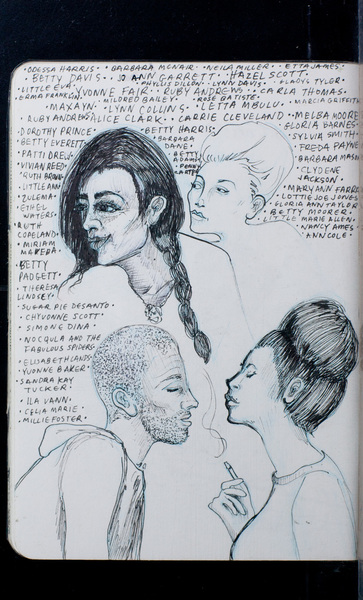 ·ODESSA HARRIS· ·BARBARA MCNAIR· ·NEILA MILLER· ·ETTA JAMES·
BETTY DAVIS· ·JO ANN GARRETT· HAZEL SCOTT·
·PHYLLIS DILLON· ·LYNN DAVIS· ·GLADYS TYLER·
·LITTLE EVA· ·YVONNE FAIR· ·RUBY ANDREWS· ·CARLA THOMAS·
·ERMA FRANKLIN· MILDRED BAILEY· ·ROSE BATISTE·
·MAXAYN· ·LYNN COLLINS· ·LETTA MBULU· ·MARCIA GRIFFITHS
·RUBY ANDREWS· ·ALICE CLARK· ·CARRIE CLEVELAND· ·MELBA MOORE·
·DOROTHY PRINCE· ·BETTY HARRIS· GLORIA BARNES·
·BETTY EVERETT· ·BARBARA DANE· SYLVIA SMITH·
·PATTI DREW· ·BETTY ADAMS· FREDA PAYNE
·VIVIAN REED· BARBARA MASON
·RUTH BROWN· ·CLYDENE JACKSON·
·LITTLE ANN· MARY ANN FARRA
·ZULEMA· ·LOTTIE JOE JONES·
·ETHEL WATERS· GLORIA ANN TAYLOR
·BETTY MOORER·
·RUTH COPELAND· LITTLE MARIE ALLEN·
·MIRIAM MAKEBA· NANCY AMES·
ANN COLE·
·BETTY PADGETT·
·THERESA LINDSEY·
·SUGAR PIE DESANTO·
·CHYVONNE SCOTT·
·SIMONE DINA·
·NOCQULA AND THE
FABULOUS SPIDERS·
·ELISABETH LANDS·
·YVONNE BAKER·
·SANDRA KAY
TUCKER·
·ILA VANN·
·CELIA MARIE·
·MILLIE FOSTER·